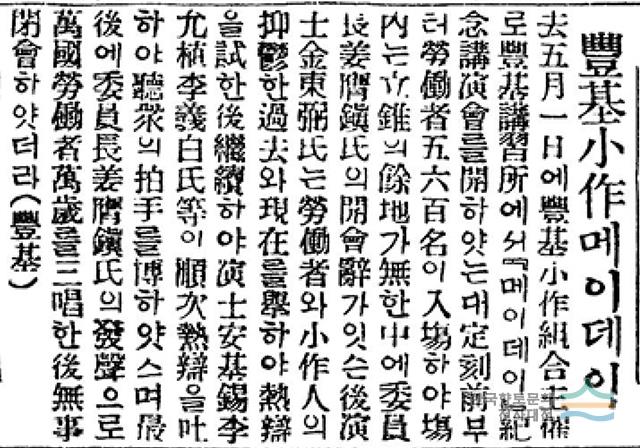 豐基小作메이데이
去五月一日에豐基小作組合主催
로豐基講習所에서『메이데이』紀
念講演會를開하얏는대定刻前부
터勞働者五六百名이入塲하야塲
內는立錐의餘地가無한中에委員
長姜膺鎭氏의開會辭가잇슨後演
士金東弼氏는勞働者와小作人의
抑鬱한過去와現在를擧하야熱辯
을試한後繼續하야演士安基錫李
允植李義白氏等이順次熱辯을吐
하야聽衆의拍手를博하얏스며最
後에委員長姜膺鎭氏의發聲으로
萬國勞働者萬歲를三唱한後無事
閉會하얏더라(豐基)